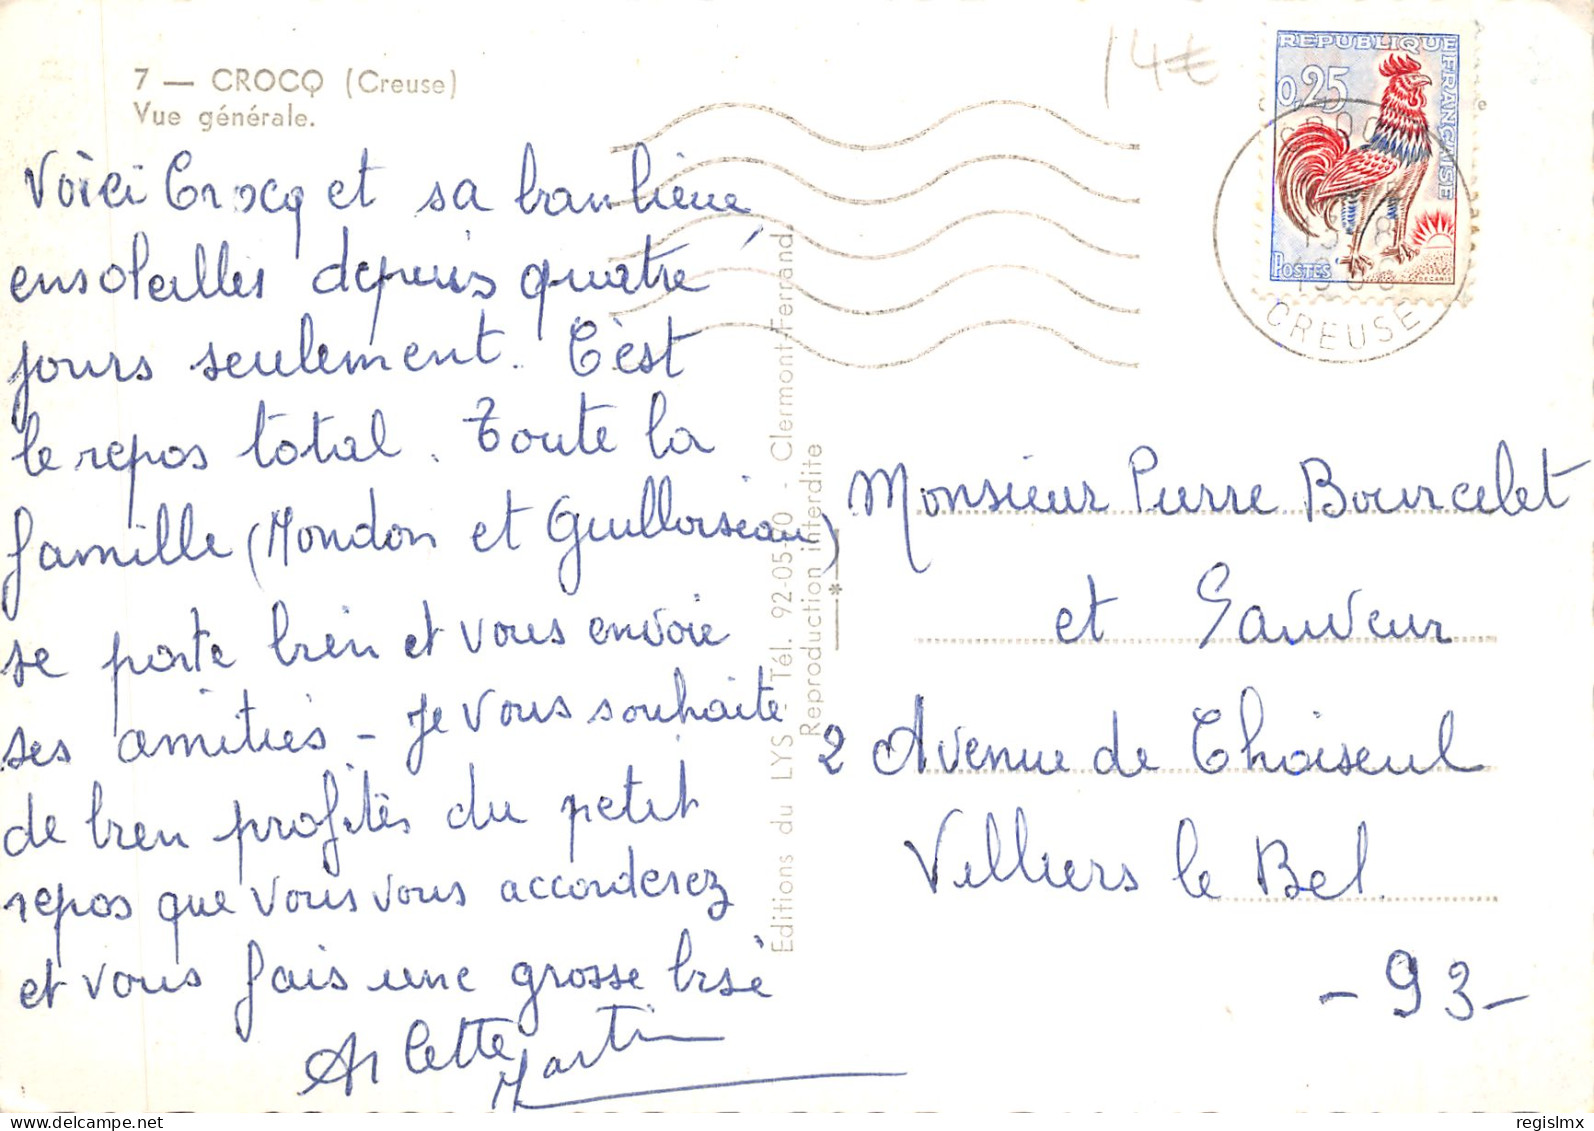 7 — CROCQ (Creuse)
Vue générale.
14€
REPUBLIQUE FRANÇAISE
0,25
POSTES
DECARIS
CREUSE
Voici Crocq et sa banlieue
ensoleillés depuis quatre
jours seulement. C'est
le repos total. Toute la
famille (Mondon et Guilloiseau)
se porte bien et vous envoie
ses amitiés - Je vous souhaite
de bien profités du petit
repos que vous vous accorderez
et vous fais une grosse bise
Arlette Martin
Editions du LYS - Tél. 92-05-50 - Clermont-Ferrand
Reproduction interdite
Monsieur Pierre Bourcelet
et Sauveur
2 Avenue de Choiseul
Villiers le Bel
- 93 -
regislmx